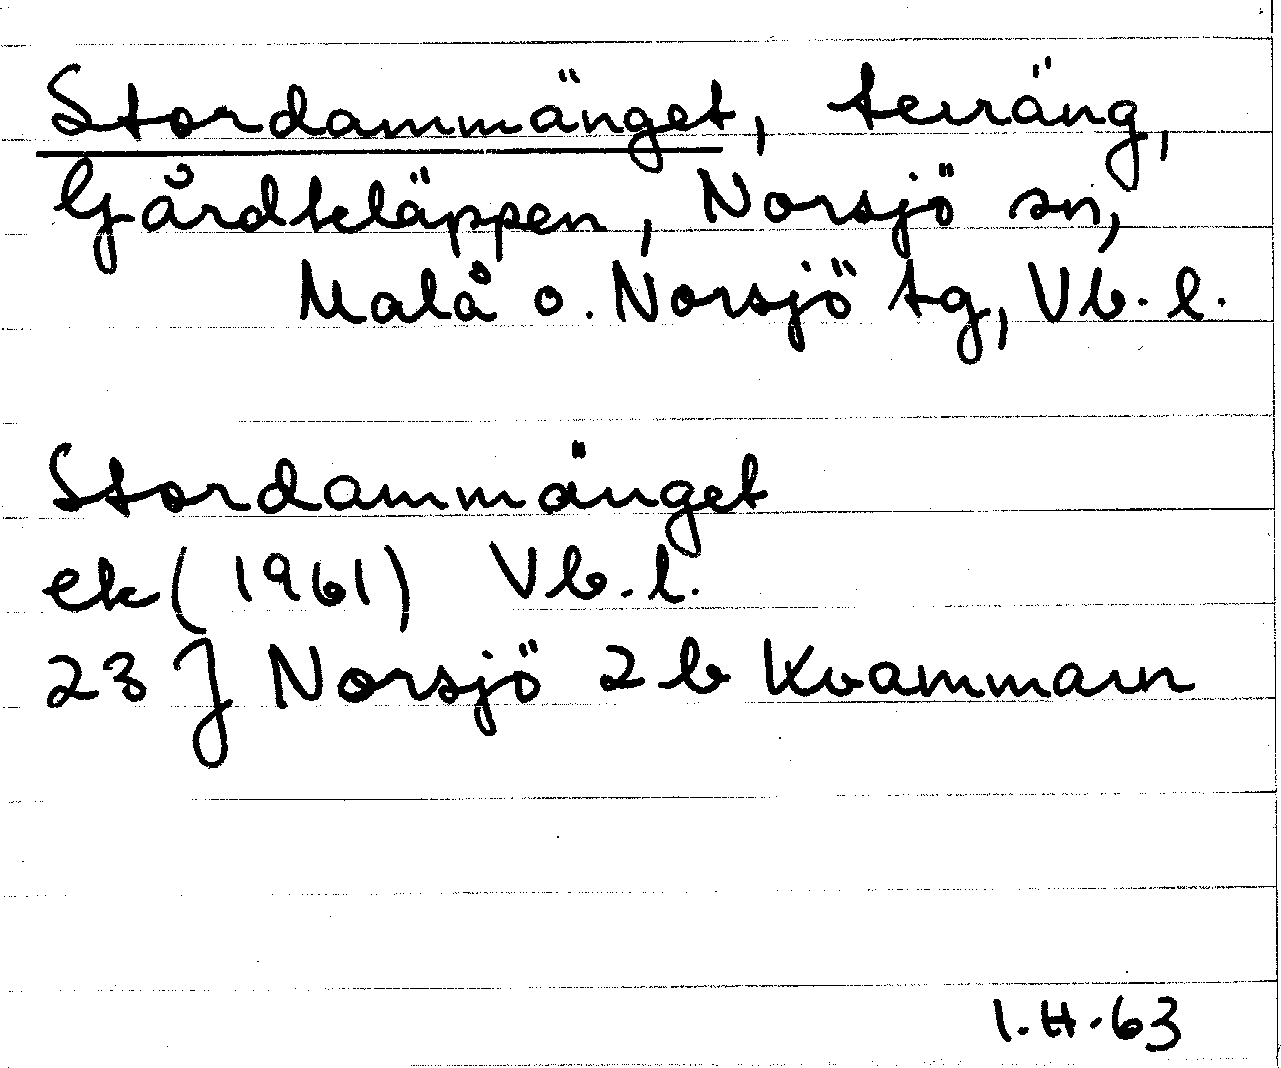 Stordammänget, terräng,
Gårdkläppen, Norsjö sn,
Malå o. Norsjö tg, Vb. l.
Stordammänget
ek (1961) Vb. l.
23 J Norsjö 2 b Kvammarn
I. H. 63